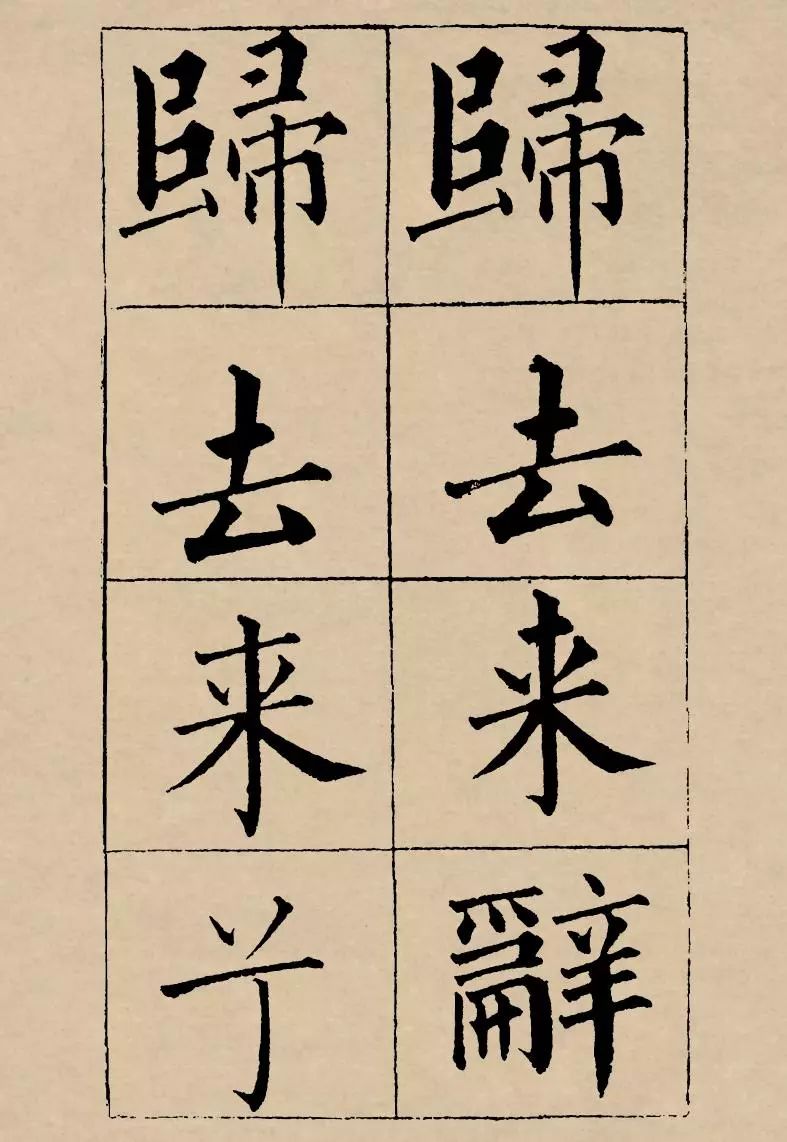 歸去来辭
歸去来兮